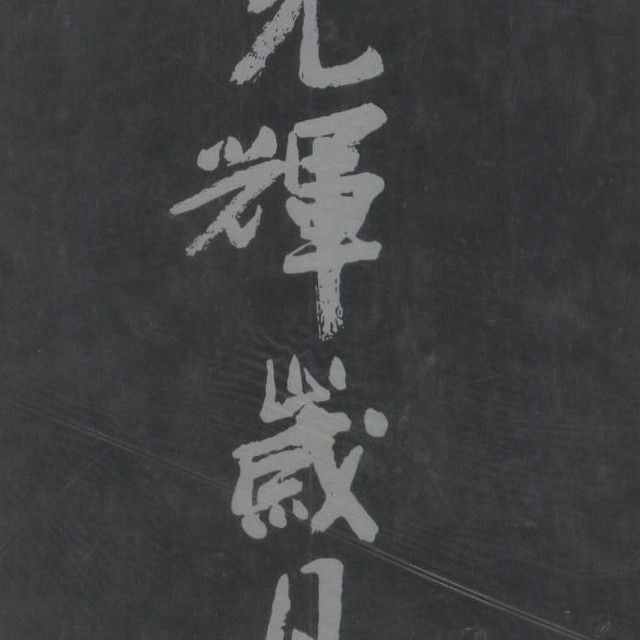 光輝歲月